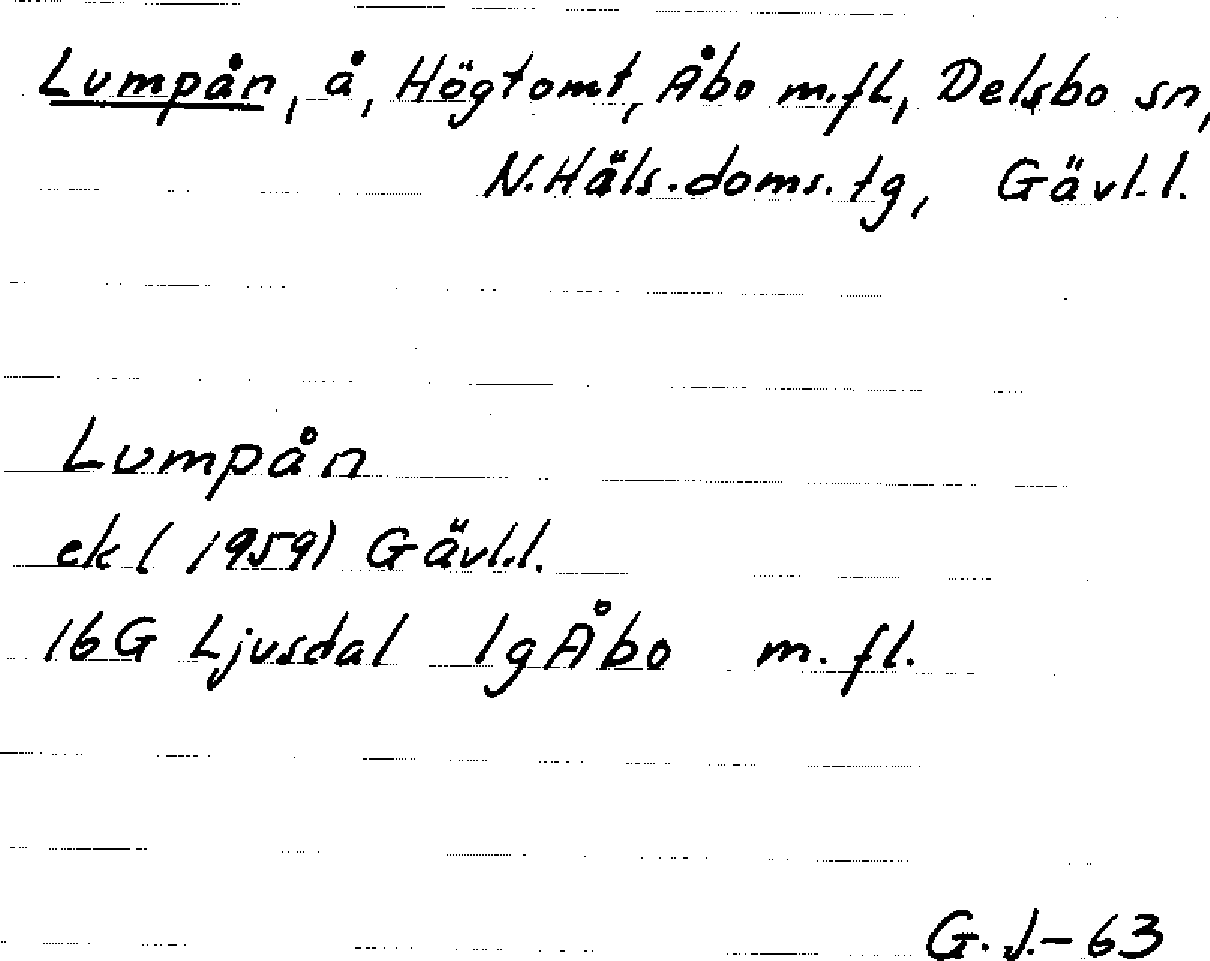 Lumpån, å, Högtomt, Åbo m.fl., Delsbo sn,
N.Häls.doms.tg, Gävl.l.
Lumpån
ek (1959) Gävl.l.
16G Ljusdal lg Åbo m. fl.
G.J.-63